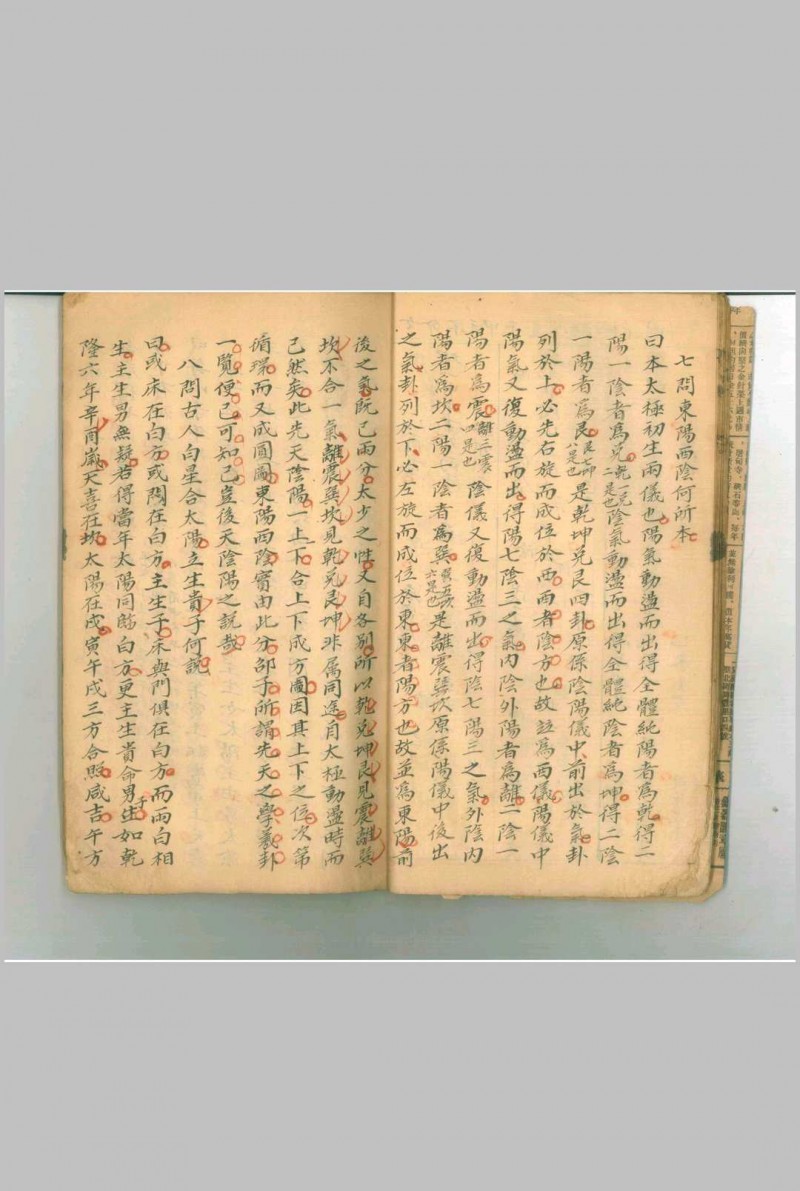 七問東陽西陰何所本
曰本太極初生兩儀也陽氣動盪而出得全體純陽者為乾得二
陽一陰者為兌乾一兌二是也陰氣動盪而出得全體純陰者為坤得二陰
一陽者為艮艮七坤八是也是乾坤兌艮四卦原係陰陽儀中前出於氣卦
列於上必先右旋而成位於西西者陰方也故並為西儀陽儀中
陽氣又復動盪而出得陽七陰三之氣內陰外陽者為離二陰一
陽者為震離三震四是也陰儀又復動盪而出得陰七陽三之氣外陰內
陽者為坎二陽一陰者為巽巽五坎六是也是離震巽坎原係陽儀中後出
之氣卦列於下必左旋而成位於東東者陽方也故並為東陽前
後之氣既已兩分太少之性又自各別所以乾兌坤艮見震離巽
坎不合一氣離震巽坎見乾兌艮坤非属同途自太極動盪時而
已然矣此先天陰陽一上一下合上下成方圖因其上下之位次第
循環而又成圓圖東陽西陰實由此分邵子所謂先天之學羲卦
一覽便已可知已豈後天陰陽之說哉
八問古人白星合太陽立生貴子何說
曰或床在白方或門在白方主生子床與門俱在白方而兩白相
生主生男無疑若得當年太陽同臨白方更主生貴命男子生如乾
隆六年辛酉嵗天喜在坎太陽在戌寅午戌三方合照咸吉午方